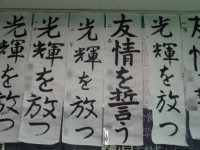 光輝を放つ
友情を誓う
光輝を放つ
光輝を放つ
光輝を放つ